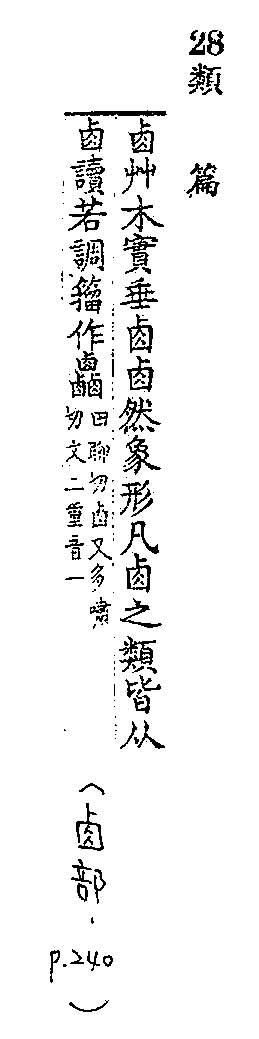 28類 篇
卥艸木實垂卥卥然象形凡卥之類皆从
卥讀若調籒作田聊切卥又多嘯
切文二重音一
(卥部.
p.240)